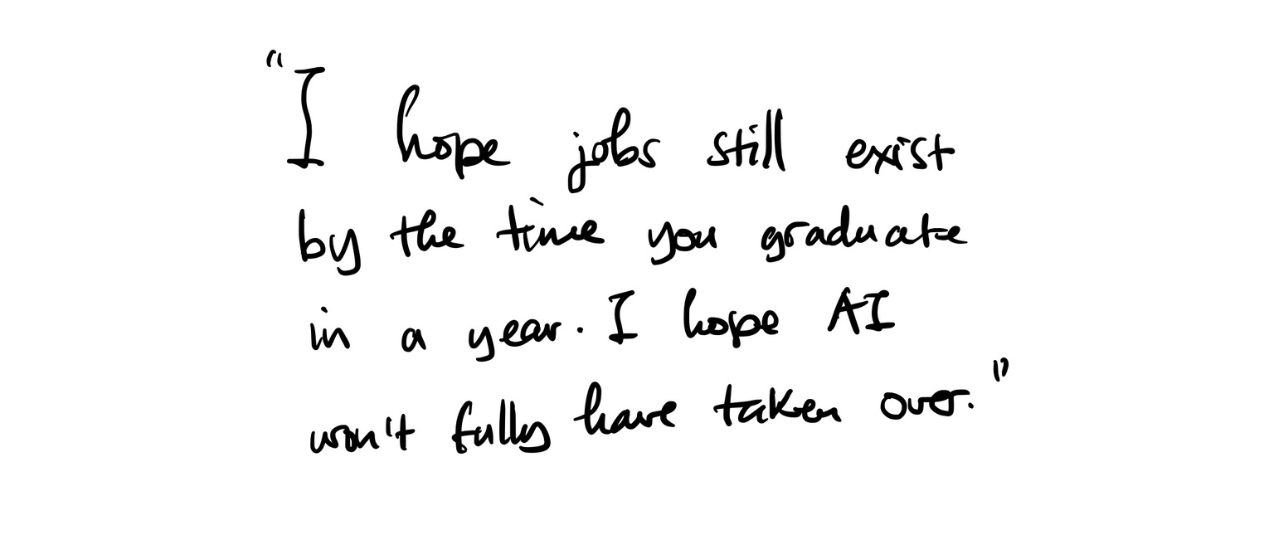 "I hope jobs still exist
by the time you graduate
in a year. I hope AI
won't fully have taken over."